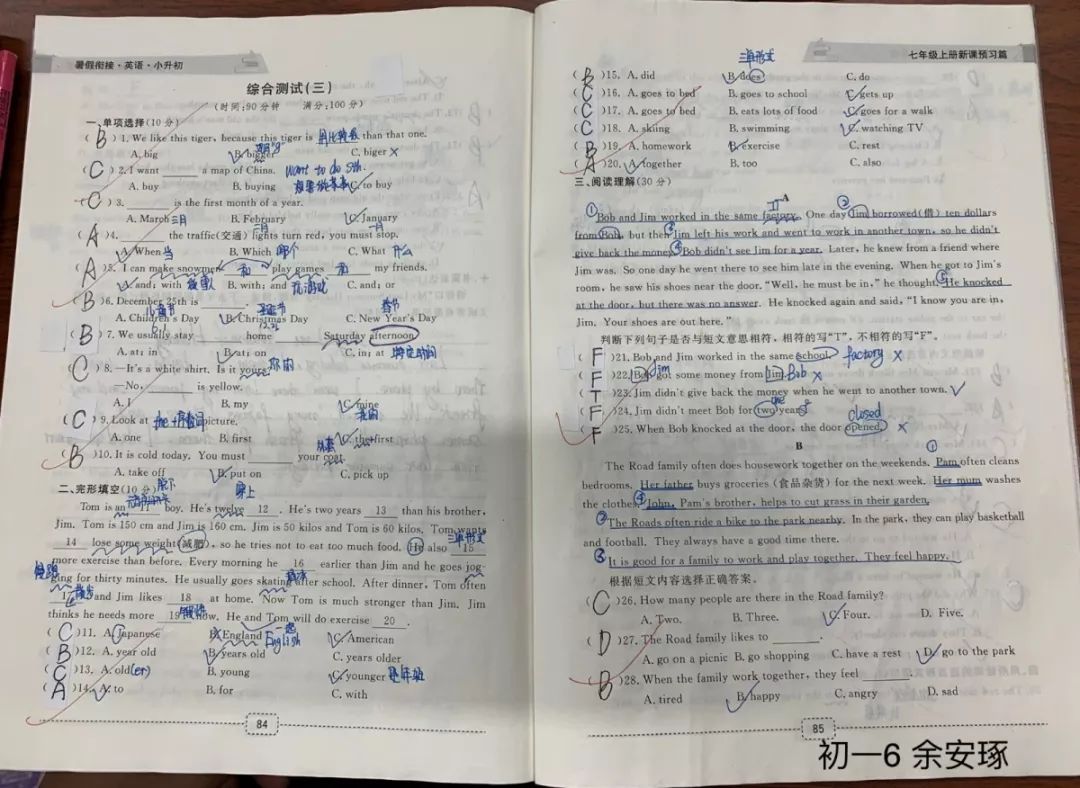 暑假衔接·英语·小升初
综合测试(三)
(时间:90分钟 满分:100分)
一、单项选择(10分)
( B )1. We like this tiger, because this tiger is 用比较级 than that one.
A. big B. bigger C. biger ×
( C )2. I want ____ a map of China. want to do sth.
A. buy B. buying C. to buy
( C )3. ____ is the first month of a year.
A. March 三月 B. February 二月 C. January 一月
( A )4. ____ the traffic(交通) lights turn red, you must stop.
A. When 当 B. Which 哪个 C. What 什么
( A )5. I can make snowmen 和 play games 和 my friends.
A. and; with 堆雪人 B. with; and 玩游戏 C. and; or
( B )6. December 25th is ____
儿童节 圣诞节 春节
A. Children's Day B. Christmas Day C. New Year's Day
( B )7. We usually stay ____ home ____ Saturday afternoon
A. at; in B. at; on C. in; at 特定时间
( C )8. —It's a white shirt. Is it yours 你的
—No, ____ is yellow.
A. I B. my C. mine
我的
( C )9. Look at the+序数词 picture.
A. one B. first C. the first
( B )10. It is cold today. You must ____ your coat.
A. take off 脱下 B. put on 穿上 C. pick up
二、完形填空(10分)
Tom is an 11 boy. He's twelve 12 . He's two years 13 than his brother,
Jim. Tom is 150 cm and Jim is 160 cm. Jim is 50 kilos and Tom is 60 kilos. Tom wants
三单形式
14 lose some weight(减肥), so he tries not to eat too much food. He also 15
more exercise than before. Every morning he 16 earlier than Jim and he goes jog-
慢跑
ging for thirty minutes. He usually goes skating after school. After dinner, Tom often
17 and Jim likes 18 at home. Now Tom is much stronger than Jim. Jim
thinks he needs more 19 now. He and Tom will do exercise 20 .
一起
( C )11. A. Japanese B. England English C. American
( B )12. A. year old B. years old C. years older
( C )13. A. old(er) B. young C. younger 更年轻
( A )14. A. to B. for C. with
84
七年级上册新课预习篇
三单形式
( B )15. A. did B. does C. do
( C )16. A. goes to bed B. goes to school C. gets up
( C )17. A. goes to bed B. eats lots of food C. goes for a walk
( C )18. A. skiing B. swimming C. watching TV
( B )19. A. homework B. exercise C. rest
( A )20. A. together B. too C. also
三、阅读理解(30分)
A
① Bob and Jim worked in the same factory. One day ② Jim borrowed(借) ten dollars
from Bob, but then ③ Jim left his work and went to work in another town, so he didn't
give back the money. ④ Bob didn't see Jim for a year. Later, he knew from a friend where
Jim was. So one day he went there to see him late in the evening. When he got to Jim's
room, he saw his shoes near the door. "Well, he must be in," he thought. ⑤ He knocked
at the door, but there was no answer. He knocked again and said, "I know you are in,
Jim. Your shoes are out here."
判断下列句子是否与短文意思相符，相符的写"T"，不相符的写"F"。
( F )21. Bob and Jim worked in the same school. factory ×
( F )22. Bob Jim got some money from Jim. Bob ×
( T )23. Jim didn't give back the money when he went to another town.
one
( F )24. Jim didn't meet Bob for two years.
closed
( F )25. When Bob knocked at the door, the door opened. ×
B
The Road family often does housework together on the weekends. ① Pam often cleans
bedrooms. Her father buys groceries (食品杂货) for the next week. Her mum washes
the clothes. ④ John, Pam's brother, helps to cut grass in their garden.
② The Roads often ride a bike to the park nearby. In the park, they can play basketball
and football. They always have a good time there.
③ It is good for a family to work and play together. They feel happy.
根据短文内容选择正确答案。
( C )26. How many people are there in the Road family?
A. Two. B. Three. C. Four. D. Five.
( D )27. The Road family likes to ____.
A. go on a picnic B. go shopping C. have a rest D. go to the park
( B )28. When the family work together, they feel ____
A. tired B. happy C. angry D. sad
85
初一6 余安琢